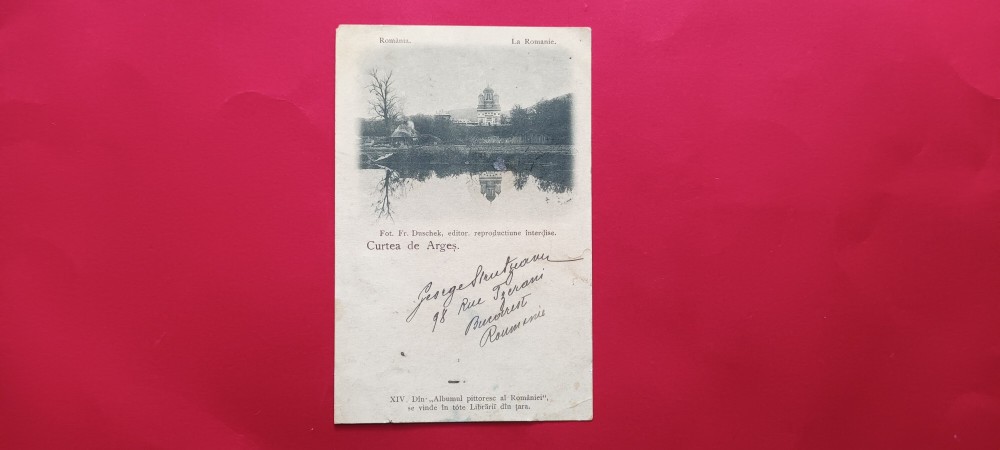 România. La Romanie.
Fot. Fr. Duschek, editor, reproductiune interdise.
Curtea de Argeș.
George
98 Rue Tzerani
Bucarest
Roumanie
XIV. Din „Albumul pittoresc al României",
se vinde în tóte Librării din țara.